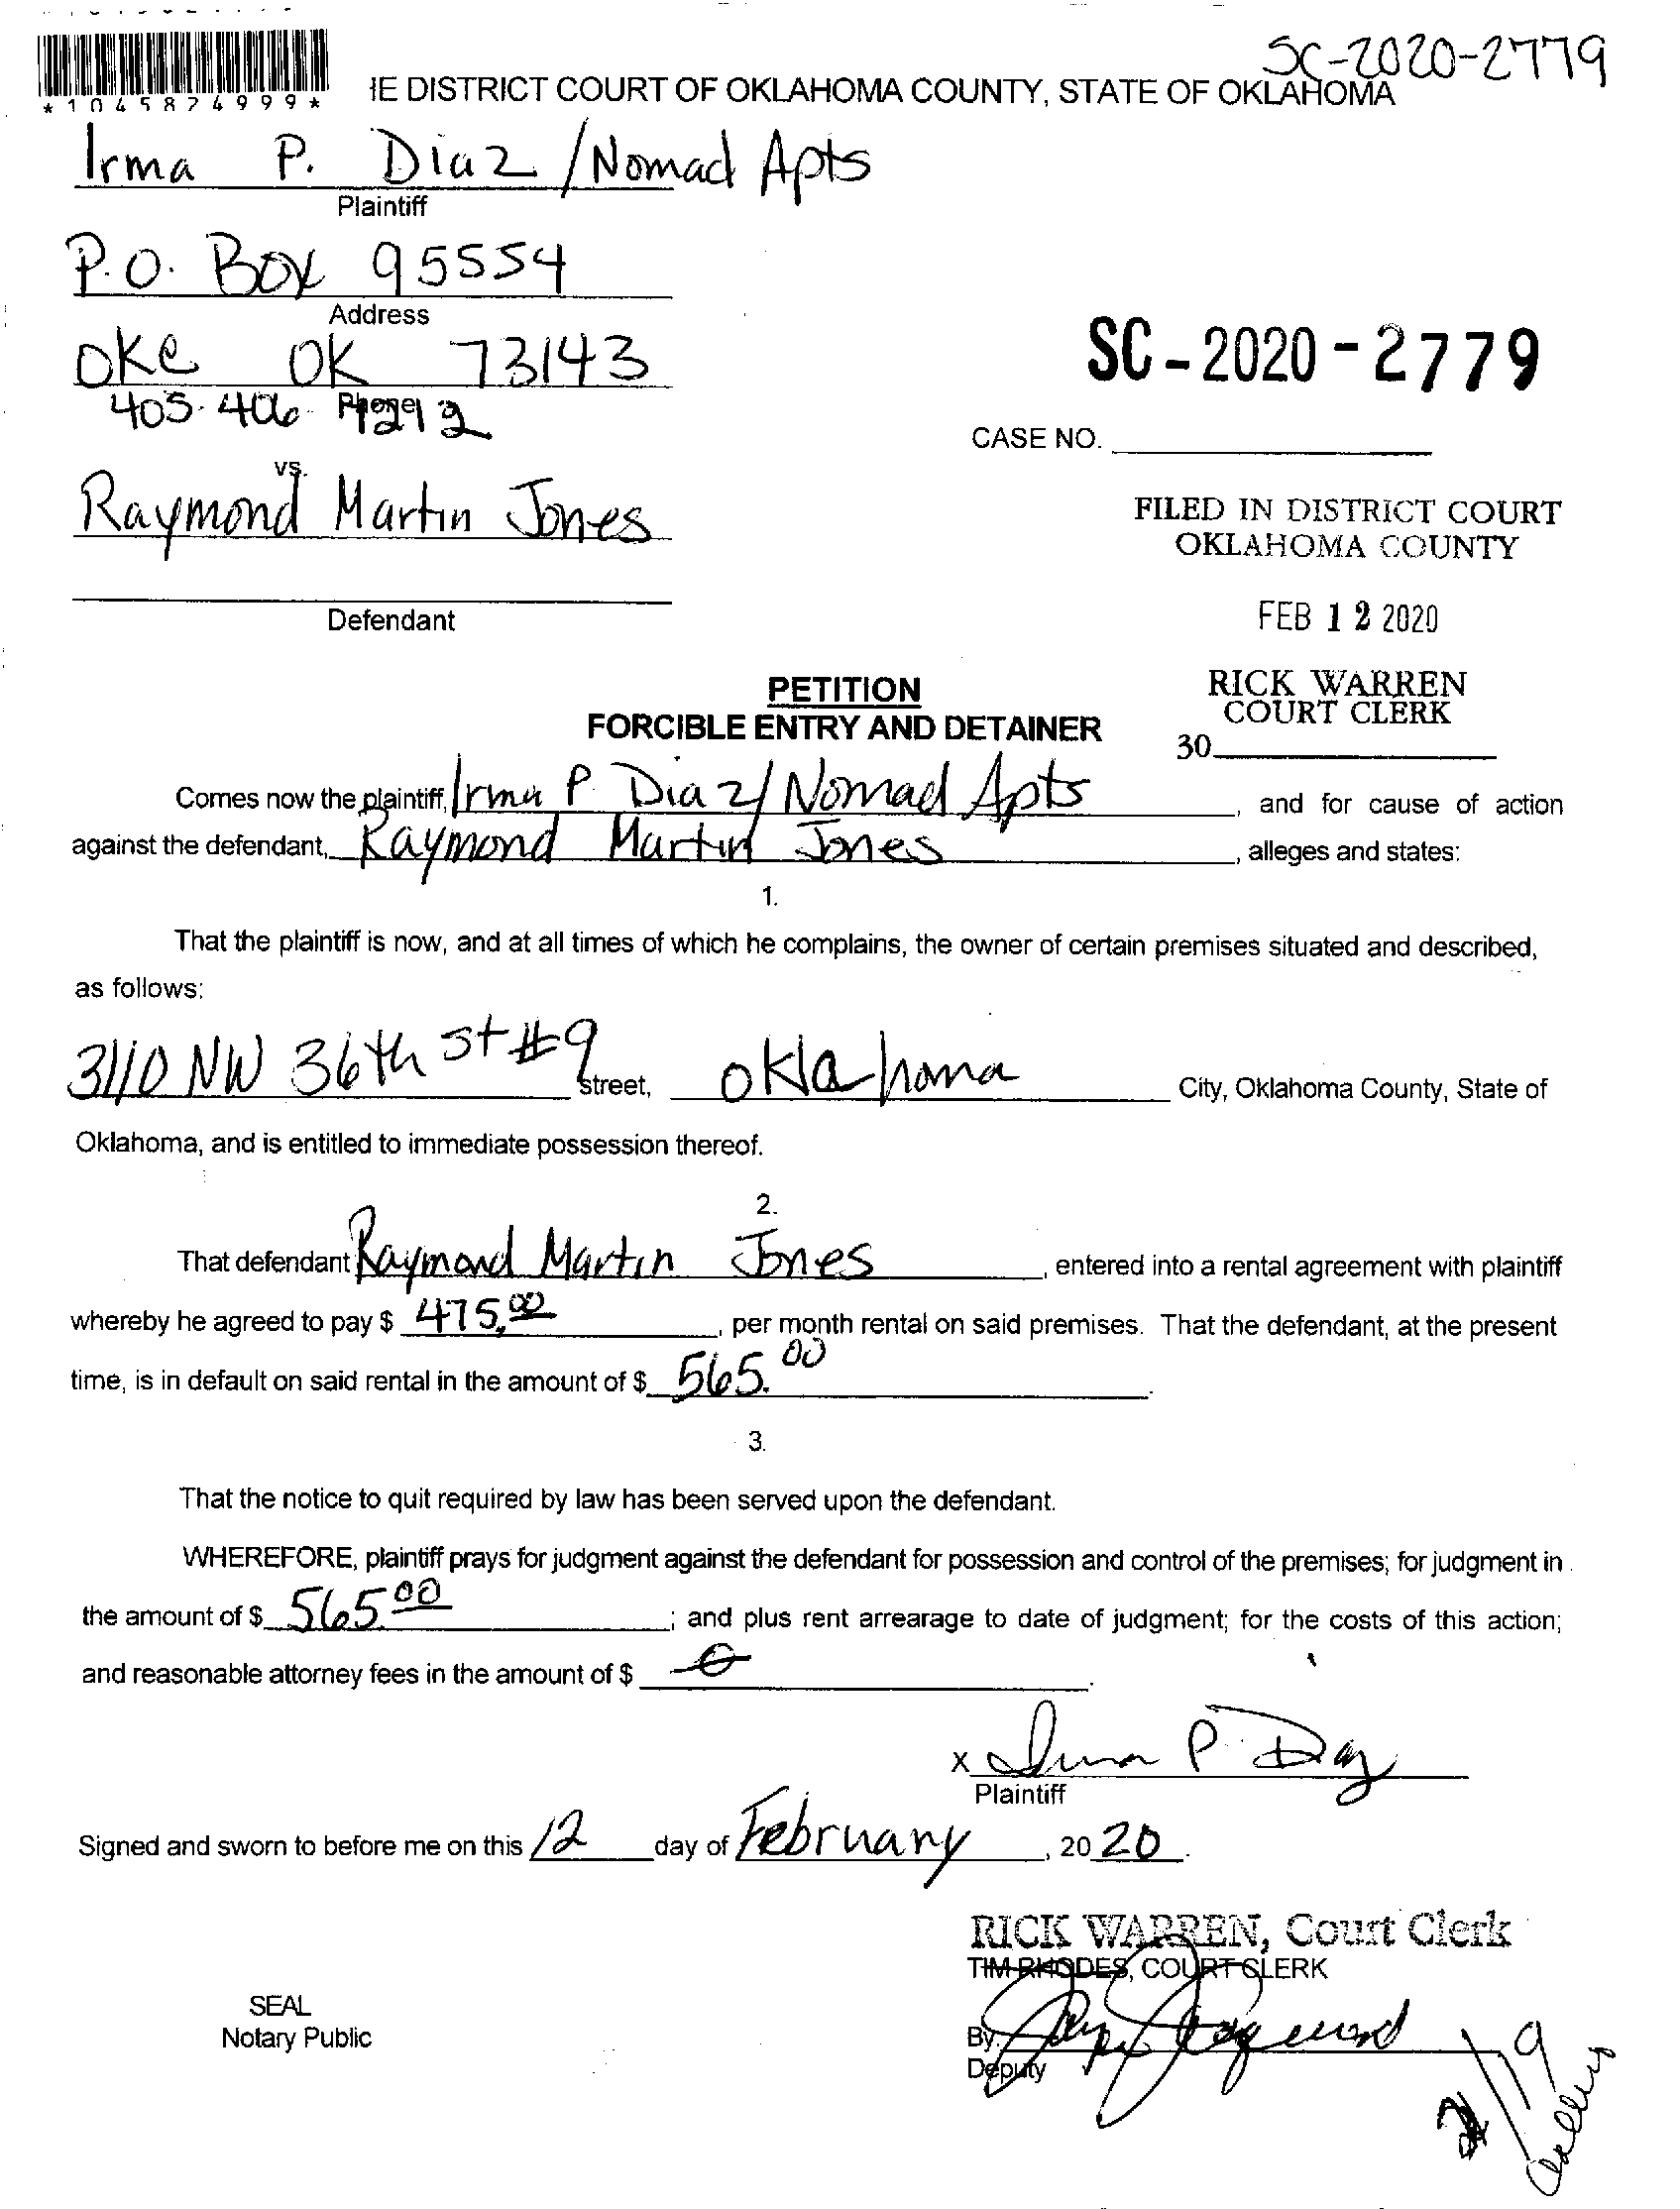 SC-2020-2779
*1045874999*
IE DISTRICT COURT OF OKLAHOMA COUNTY, STATE OF OKLAHOMA
Irma P. Diaz /Nomad Apts
Plaintiff
P.O. Box 95554
Address
OKC OK 73143
405-406-
Phone
vs.
Raymond Martin Jones
Defendant
SC-2020-2779
CASE NO.
FILED IN DISTRICT COURT
OKLAHOMA COUNTY
FEB 12 2020
RICK WARREN
COURT CLERK
30
PETITION
FORCIBLE ENTRY AND DETAINER
Comes now the plaintiff, Irma P Diaz/Nomad Apts, and for cause of action
against the defendant, Raymond Martin Jones, alleges and states:
1.
That the plaintiff is now, and at all times of which he complains, the owner of certain premises situated and described,
as follows:
3110 NW 36th st #9 street, Oklahoma City, Oklahoma County, State of
Oklahoma, and is entitled to immediate possession thereof.
2.
That defendant Raymond Martin Jones, entered into a rental agreement with plaintiff
whereby he agreed to pay $ 475.00, per month rental on said premises. That the defendant, at the present
time, is in default on said rental in the amount of $ 565.00.
3.
That the notice to quit required by law has been served upon the defendant.
WHEREFORE, plaintiff prays for judgment against the defendant for possession and control of the premises; for judgment in
the amount of $ 565.00; and plus rent arrearage to date of judgment; for the costs of this action;
and reasonable attorney fees in the amount of $ 0.
X Irma P Diaz
Plaintiff
Signed and sworn to before me on this 12 day of February, 2020.
RICK WARREN, Court Clerk
TIM RHODES, COURT CLERK
SEAL
Notary Public
By
Deputy
2/19